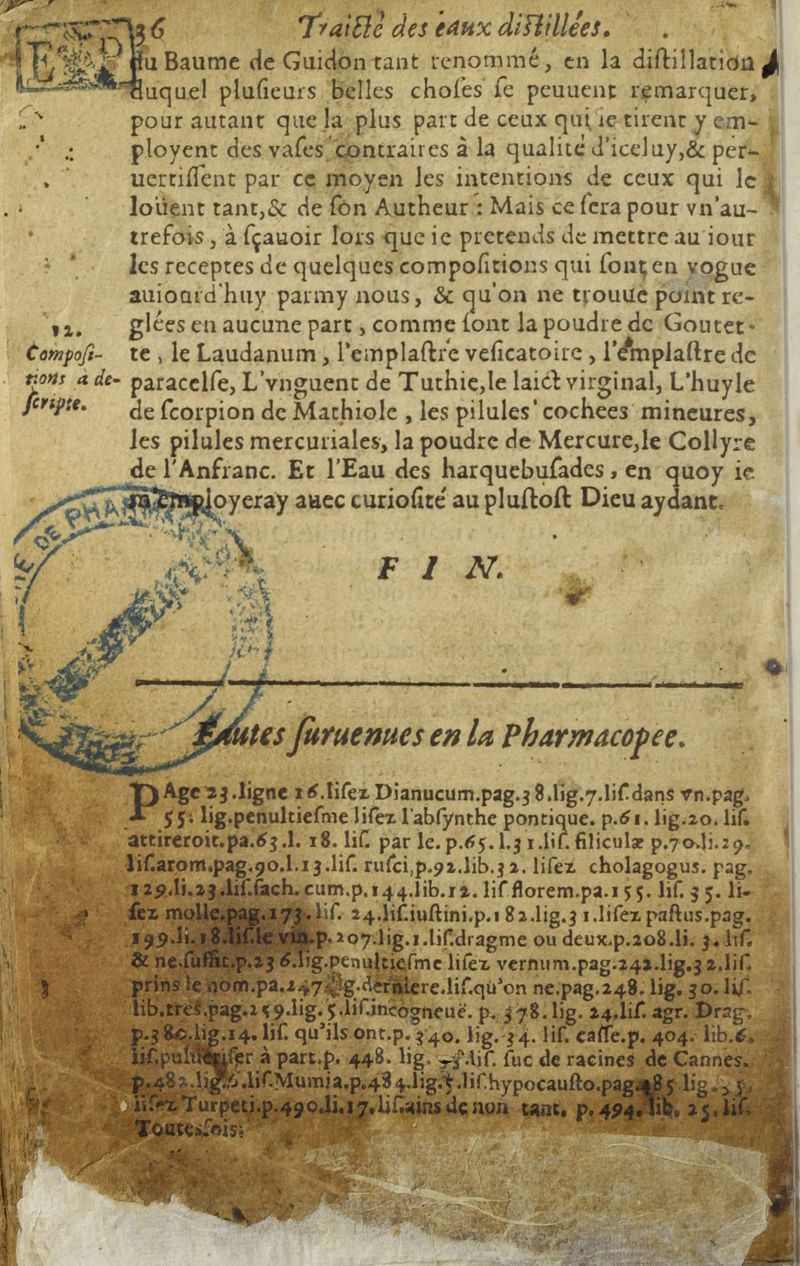 36 Traicté des eaux distillées.
du Baume de Guidon tant renommé, en la distillation
duquel plusieurs belles choses se peuuent remarquer,
pour autant que la plus part de ceux qui le tirent y em-
ployent des vases contraires à la qualité d'iceluy,& per-
uertissent par ce moyen les intentions de ceux qui le
loüent tant,& de son Autheur : Mais ce sera pour vn'au-
trefois, à sçauoir lors que ie pretends de mettre au iour
les receptes de quelques compositions qui sont en vogue
auiourd'huy parmy nous, & qu'on ne trouue point re-
glées en aucune part, comme sont la poudre de Goutet-
12.
Composi-
tions à de-
scripte.
te, le Laudanum, l'emplastre vesicatoire, l'emplastre de
paracelse, L'vnguent de Tuthie,le laict virginal, L'huyle
de scorpion de Mathiole, les pilules cochees mineures,
les pilules mercuriales, la poudre de Mercure,le Collyre
de l'Anfranc. Et l'Eau des harquebusades, en quoy ie
m'employeray auec curiosité au plustost Dieu aydant.
DE PHAR
F I N.
Fautes suruenues en la Pharmacopee.
PAge 23.ligne 16.lisez Dianucum.pag.38.lig.7.lis.dans vn.pag.
55. lig.penultiesme lisez l'absynthe pontique. p.61. lig.20. lis.
attireroit.pa.63.l. 18. lis. par le. p.65.l.31.lis. filiculæ p.70.li.29.
lis.arom.pag.90.l.13.lis. rusci,p.92.lib.32. lisez cholagogus. pag.
129.li.23.lis.sach. cum.p.144.lib.12. lis florem.pa.155. lis. 35. li-
sez molle.pag.173.lis. 24.lis.iustini.p.182.lig.31.lisez pastus.pag.
199.li.18.lis.le vin.p.207.lig.1.lis.dragme ou deux.p.208.li. 3. lis.
& ne suffit.p.236.lig.penultiesme lisez vernum.pag.242.lig.32.lis.
prins le nom.pa.247.lig.derniere.lis.qu'on ne.pag.248. lig. 30. lis.
lib.tres.pag.259.lig.5.lis.incogneuë. p. 378.lig. 24.lis. agr. Drag.
p.380.lig.14. lis. qu'ils ont.p. 340. lig. 34. lis. casse.p. 404. lib.6.
lis. à part.p. 448. lig. lis. suc de racines de Cannes.
p.482.lig.6.lis.Mumia.p.484.lig.5.lis.hypocausto.pag.485 lig.
lisez Turpeti.p.490.li.17.lis.ains de non tant. p. 494. lib. 25. lis.
Toutesfois.